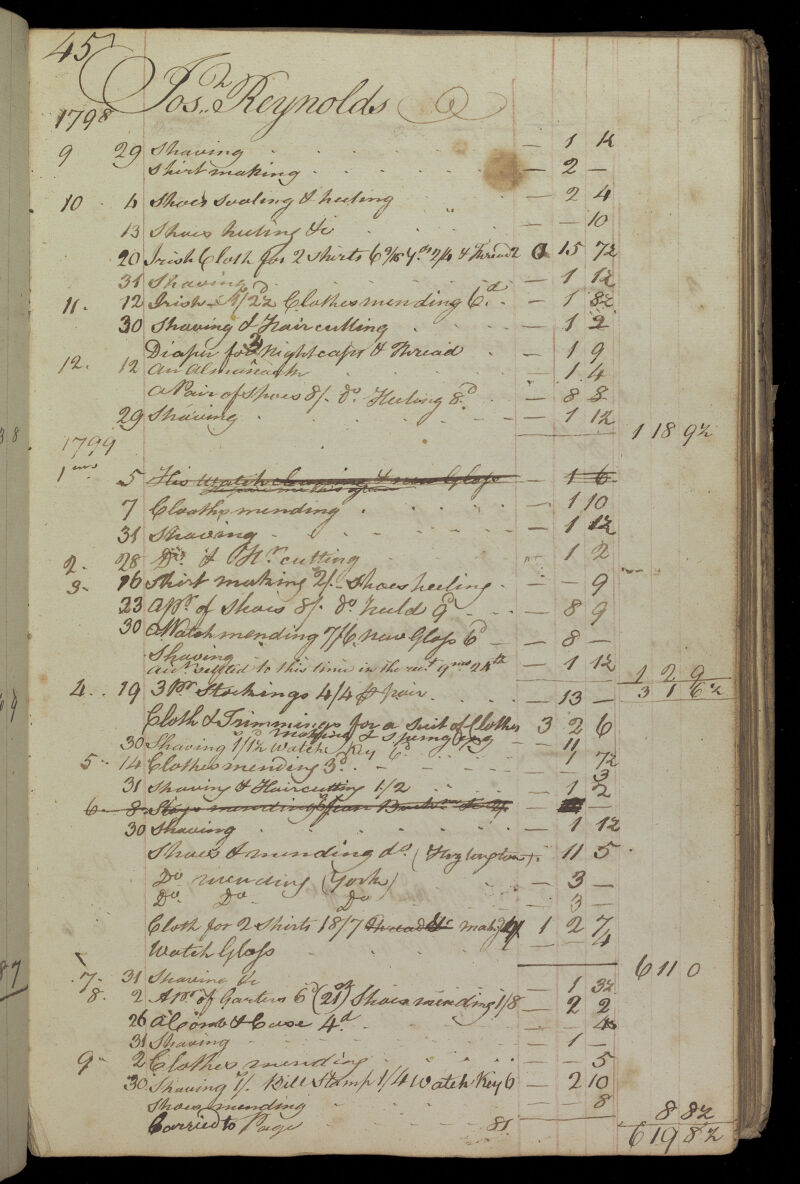 45
Josh Reynolds
1798
9 29 Shaving — 1 1½
Shirt making — 2 —
10 4 Shoes soaling & heeling — 2 4
13 Shoes heeling &c — — 10
20 Irish Cloth for 2 Shirts 6 Yds 2/4 & Thread 2 0 15 7½
31 Shaving — 1 1½
11 12 Irish 1/2½ Clothes mending 6d — 1 8½
30 Shaving & Hair cutting — 1 2
Diaper for 2 Nightcaps & Thread — 1 9
12 12 An Almanack — 1 4
A Pair of Shoes 8/. Do. Heeling 8d — 8 8
29 Shaving — 1 1½
1 18 9½
1799
1mo 5 His Watch cleaning & new Glass — 1 6
7 Cloaths mending — 1 10
31 Shaving — 1 1½
2 28 Do. & Hr. cutting — 1 2
3 16 Shirt making 2/. Shoes heeling — — 9
23 A Pr. of Shoes 8/. Do heeld 9d — 8 9
30 A Watch mending 7/6 new Glass 6d — 8 —
Shaving — 1 1½
to this time in the 9mo 24th
1 2 9
3 1 6½
4 19 3 Pr Stockings 4/4 pair — 13 —
Cloth & Trimmings for a Suit of Clothes 3 2 6
making — 11
30 Shaving 1/1½ Watch Key 6d — 1 7½
5 14 Clothes mending 3d — — 3
31 Shaving & Haircutting 1/2 — 1 2
6 8 mending
30 Shaving — 1 1½
Shoes & mending do. — 11 5
Do mending (York) — 3 —
Do. Do. Do — 3 —
Cloth for 2 Shirts 18/7 Thread &c making 4/ 1 2 7
Watch Glass — — 4
6 11 0
7 31 Shaving &c — 1 3½
8 2 A Pr. of Garters 6d (21st) Shoes mending 1/8 — 2 2
26 A Comb & Case 4d — — 4
31 Shaving — 1 —
9 2 Clothes mending — — 5
30 Shaving 1/. Bill Stamp 1/4 Watch Key 6 — 2 10
Shoes mending — — 8
8 8½
Carried to Page 81
6 19 8½